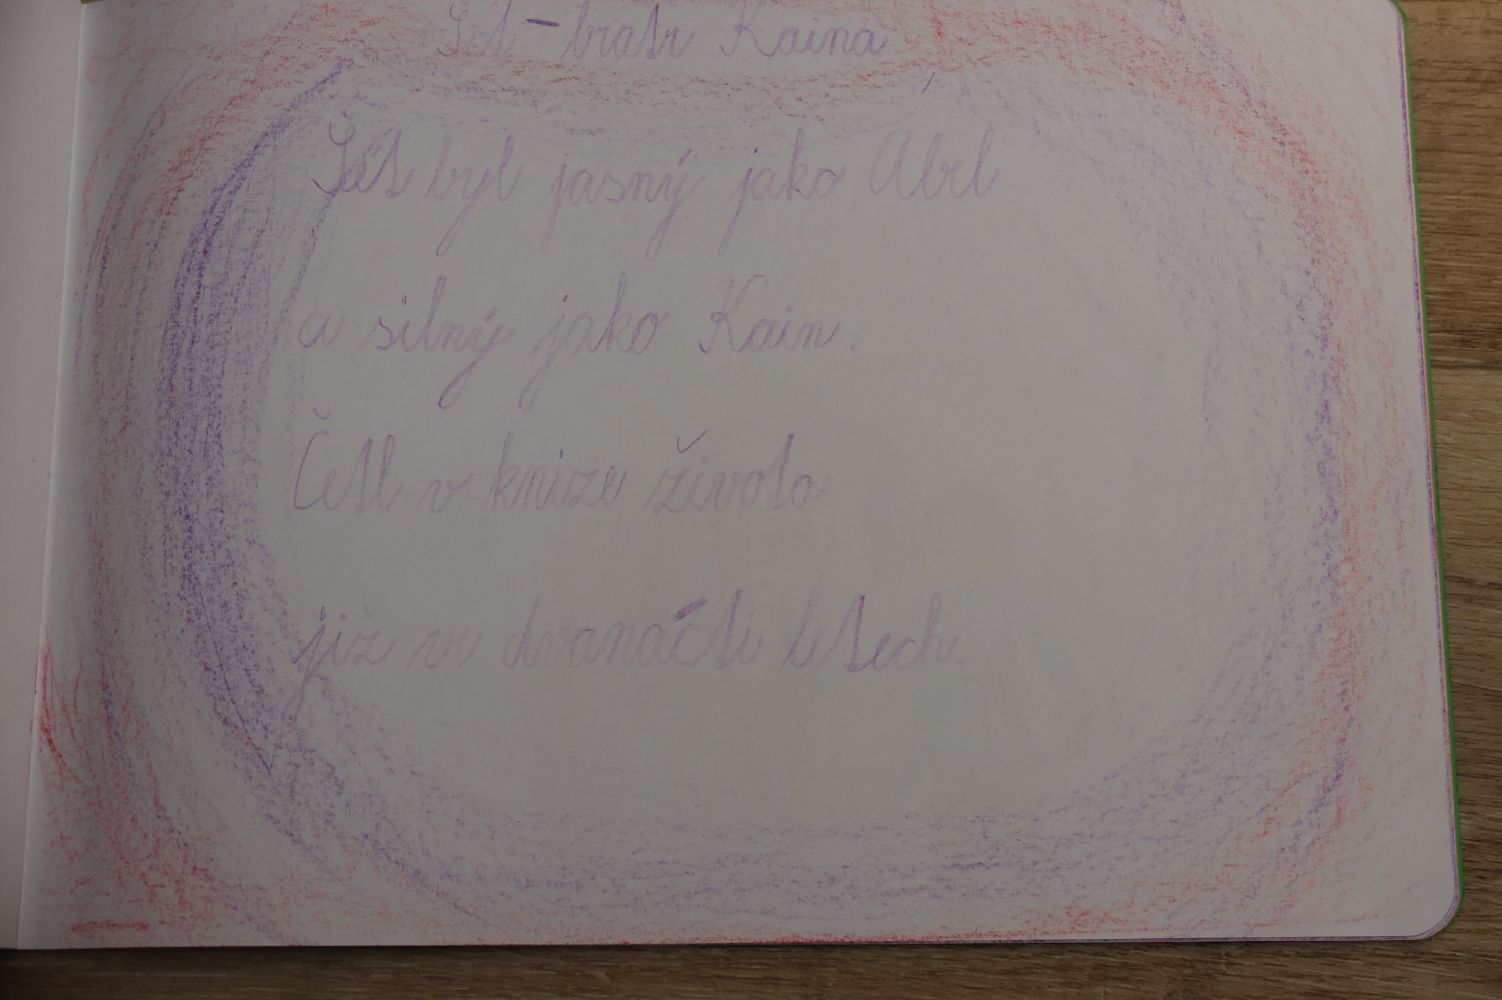 Set - bratr Kaina
Šét byl jasný jako Abel
a silný jako Kain.
Četl v knize života
již ve dvanácti letech.